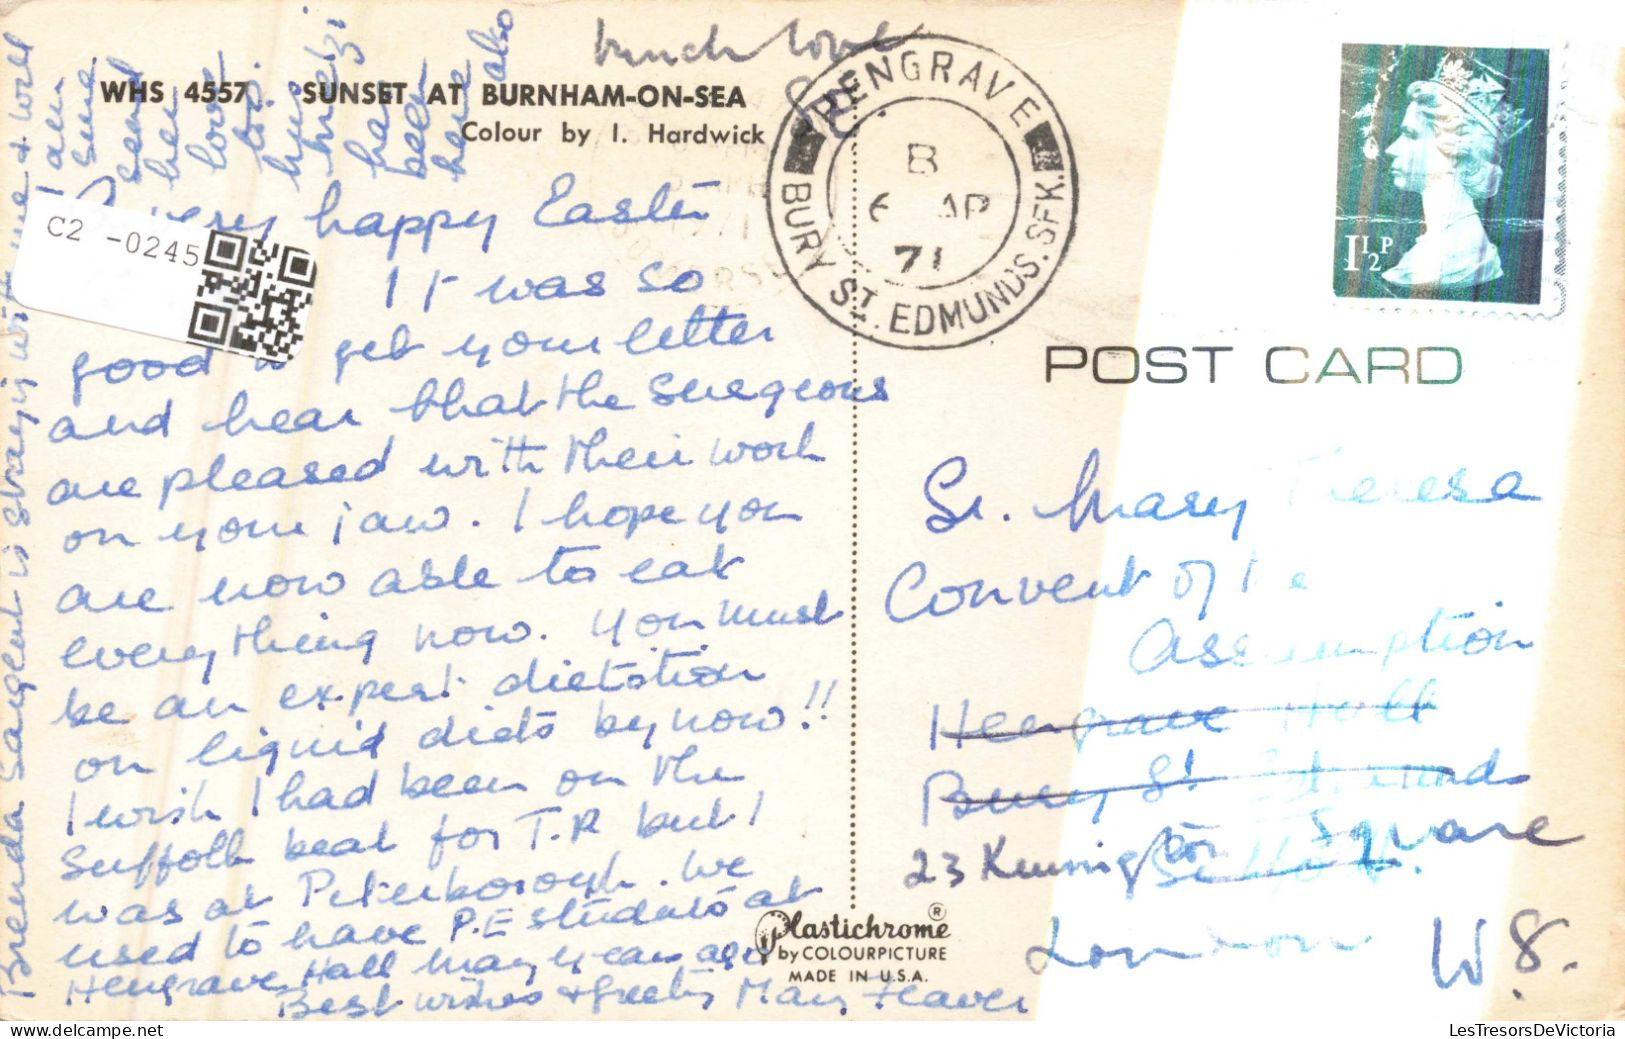 much love
WHS 4557 SUNSET AT BURNHAM-ON-SEA
Colour by I. Hardwick
C2 -0245
A very happy Easter
It was so
good to get your letter
and hear that the surgeons
are pleased with their work
on your jaw. I hope you
are now able to eat
everything now. You must
be an expert dietition
on liquid diets by now!!
I wish I had been on the
Suffolk beat for T.R but I
was at Peterborough. We
used to have P.E students at
Hengrave Hall many years ago
Best wishes & greetings Mary Heaver
Brenda is staying with me & will
I am
sure
send
her
love
too.
has
been
here also
HENGRAVE
BURY ST. EDMUNDS. SFK.
B
6 AP
71
1½P
POST CARD
Sr. Mary Theresa
Convent of the
Assumption
Hengrave Hall
Bury St. Edmunds
Suffolk.
23 Kensington Square
London W8.
Plastichrome ®
by COLOURPICTURE
MADE IN U.S.A.
LesTresorsDeVictoria